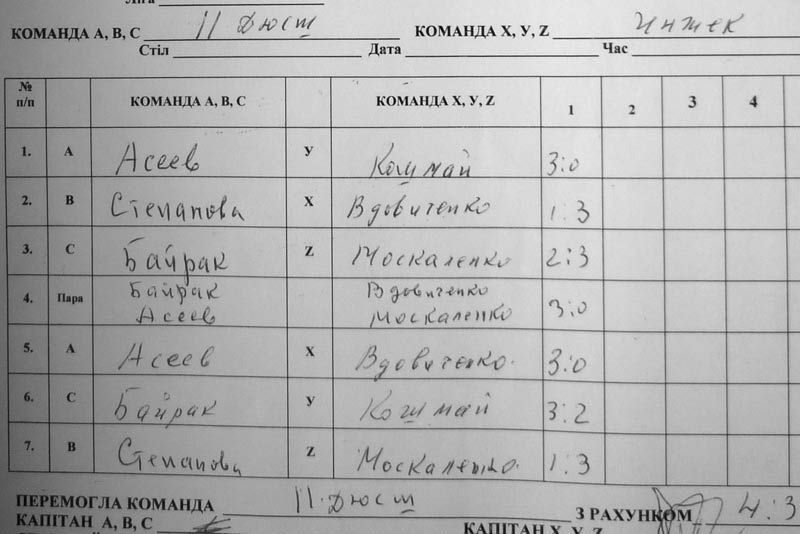 Ліга
КОМАНДА А, В, С II Дюсш КОМАНДА Х, У, Z Инжек
Стіл Дата Час
№ п/п КОМАНДА А, В, С КОМАНДА Х, У, Z 1 2 3 4
1. А Асеев У Кошмай 3:0
2. В Степанова Х Вдовиченко 1:3
3. С Байрак Z Москаленко 2:3
4. Пара Байрак Вдовиченко
Асеев Москаленко 3:0
5. А Асеев Х Вдовиченко. 3:0
6. С Байрак У Кошмай 3:2
7. В Степанова Z Москаленко. 1:3
ПЕРЕМОГЛА КОМАНДА II Дюсш З РАХУНКОМ 4:3
КАПІТАН А, В, С КАПІТАН Х, У, Z